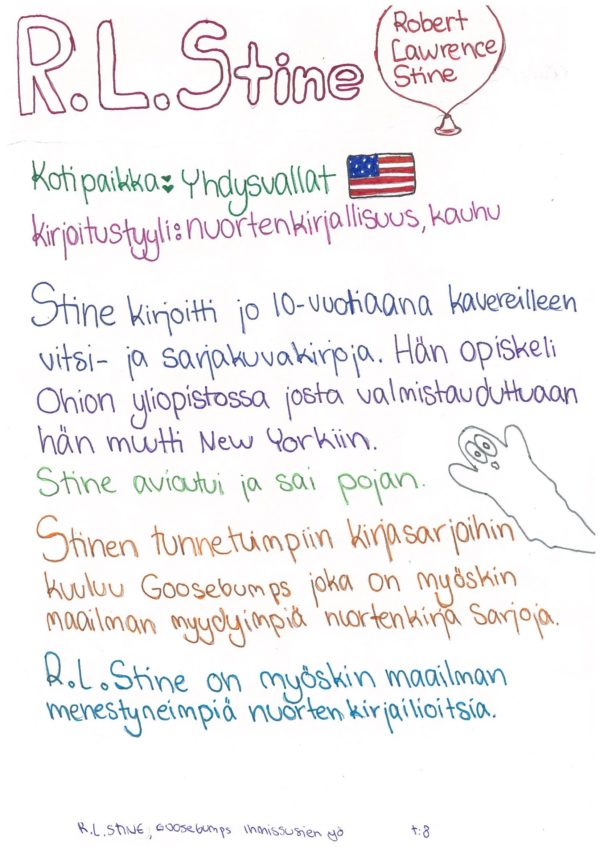 R.L.Stine
Robert
Lawrence
Stine
Kotipaikka: Yhdysvallat
Kirjoitustyyli: nuortenkirjallisuus, kauhu
Stine kirjoitti jo 10-vuotiaana kavereilleen
vitsi- ja sarjakuvakirjoja. Hän opiskeli
Ohion yliopistossa josta valmistauduttuaan
hän muutti New Yorkiin.
Stine avioutui ja sai pojan.
Stinen tunnetuimpiin kirjasarjoihin
kuuluu Goosebumps joka on myöskin
maailman myydyimpiä nuortenkirja sarjoja.
R.L.Stine on myöskin maailman
menestyneimpiä nuorten kirjailioitsia.
R.L.STINE, Goosebumps Ihmissusien yö t:8